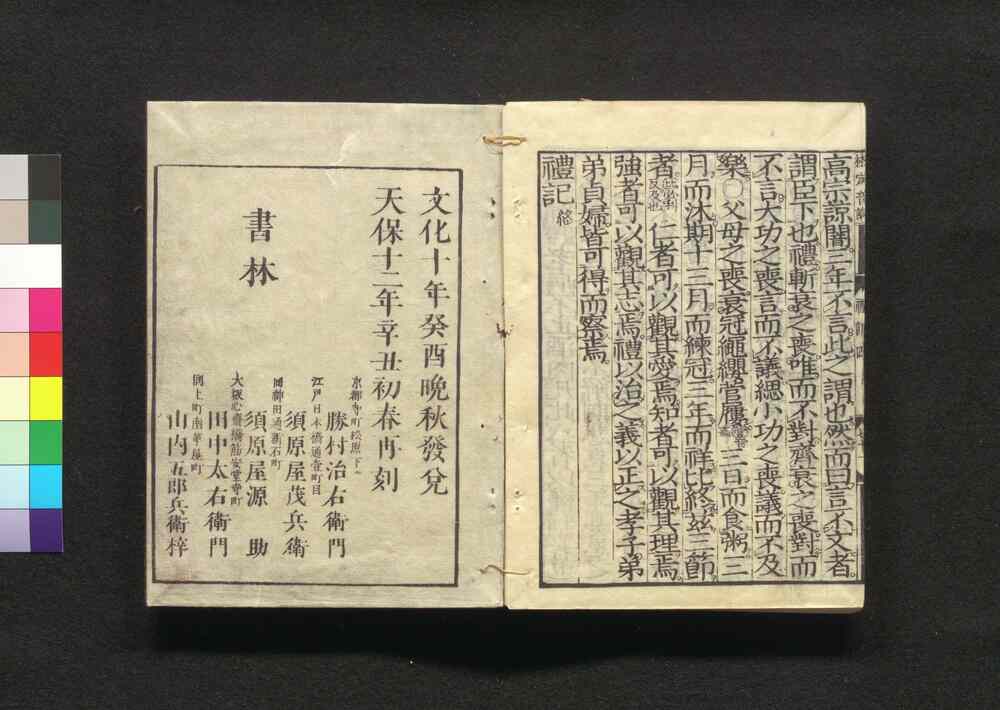 高宗諒闇三年不言此之謂也然而曰言不文者
謂臣下也禮斬衰之喪唯而不對齊衰之喪對而
不言大功之喪言而不議緦小功之喪議而不及
樂〇父母之喪衰冠繩纓菅屨三日而食粥三
月而沐期十三月而練冠三年而祥比終茲三節
者仁者可以觀其愛焉知者可以觀其理焉
強者可以觀其志焉禮以治之義以正之孝子弟
弟貞婦皆可得而察焉
禮記終
文化十年癸酉晩秋發兌
天保十二年辛丑初春再刻
京都寺町松原下
勝村治右衛門
江戸日本橋通壹町目
須原屋茂兵衛
同神田通新石町
須原屋源助
書林
大阪心齋橋筋安堂寺町
田中太右衛門
同上町南革屋町
山内五郎兵衛梓